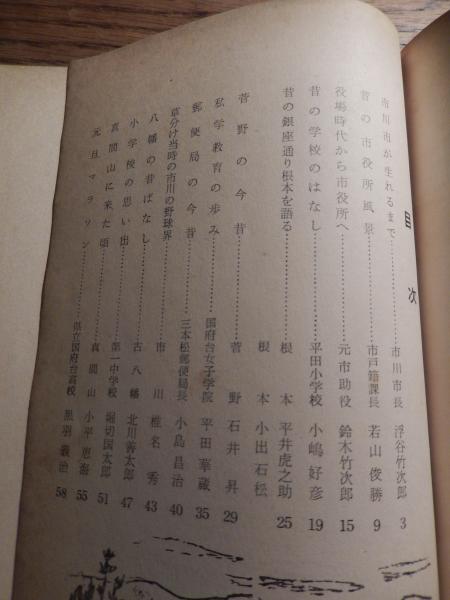 目次
市川市が生れるまで……市川市長 浮谷竹次郎 3
昔の市役所風景……市戸籍課長 若山俊勝 9
役場時代から市役所へ……元市助役 鈴木竹次郎 15
昔の学校のはなし……平田小学校 小嶋好彦 19
昔の銀座通り根本を語る……根本 平井虎之助 25
根本 小出石松
菅野の今昔……菅野 石井昇 29
私学教育の歩み……国府台女子学院 平田華蔵 35
郵便局の今昔……三本松郵便局長 小島昌治 40
草分け当時の市川の野球界……市川 椎名秀 43
八幡の昔ばなし……古八幡 北川善太郎 47
小学校の思い出……第一中学校 堀切国太郎 51
真間山に来た頃……真間山 小平恵海 55
元旦マラソン……県立国府台高校 黒羽義治 58